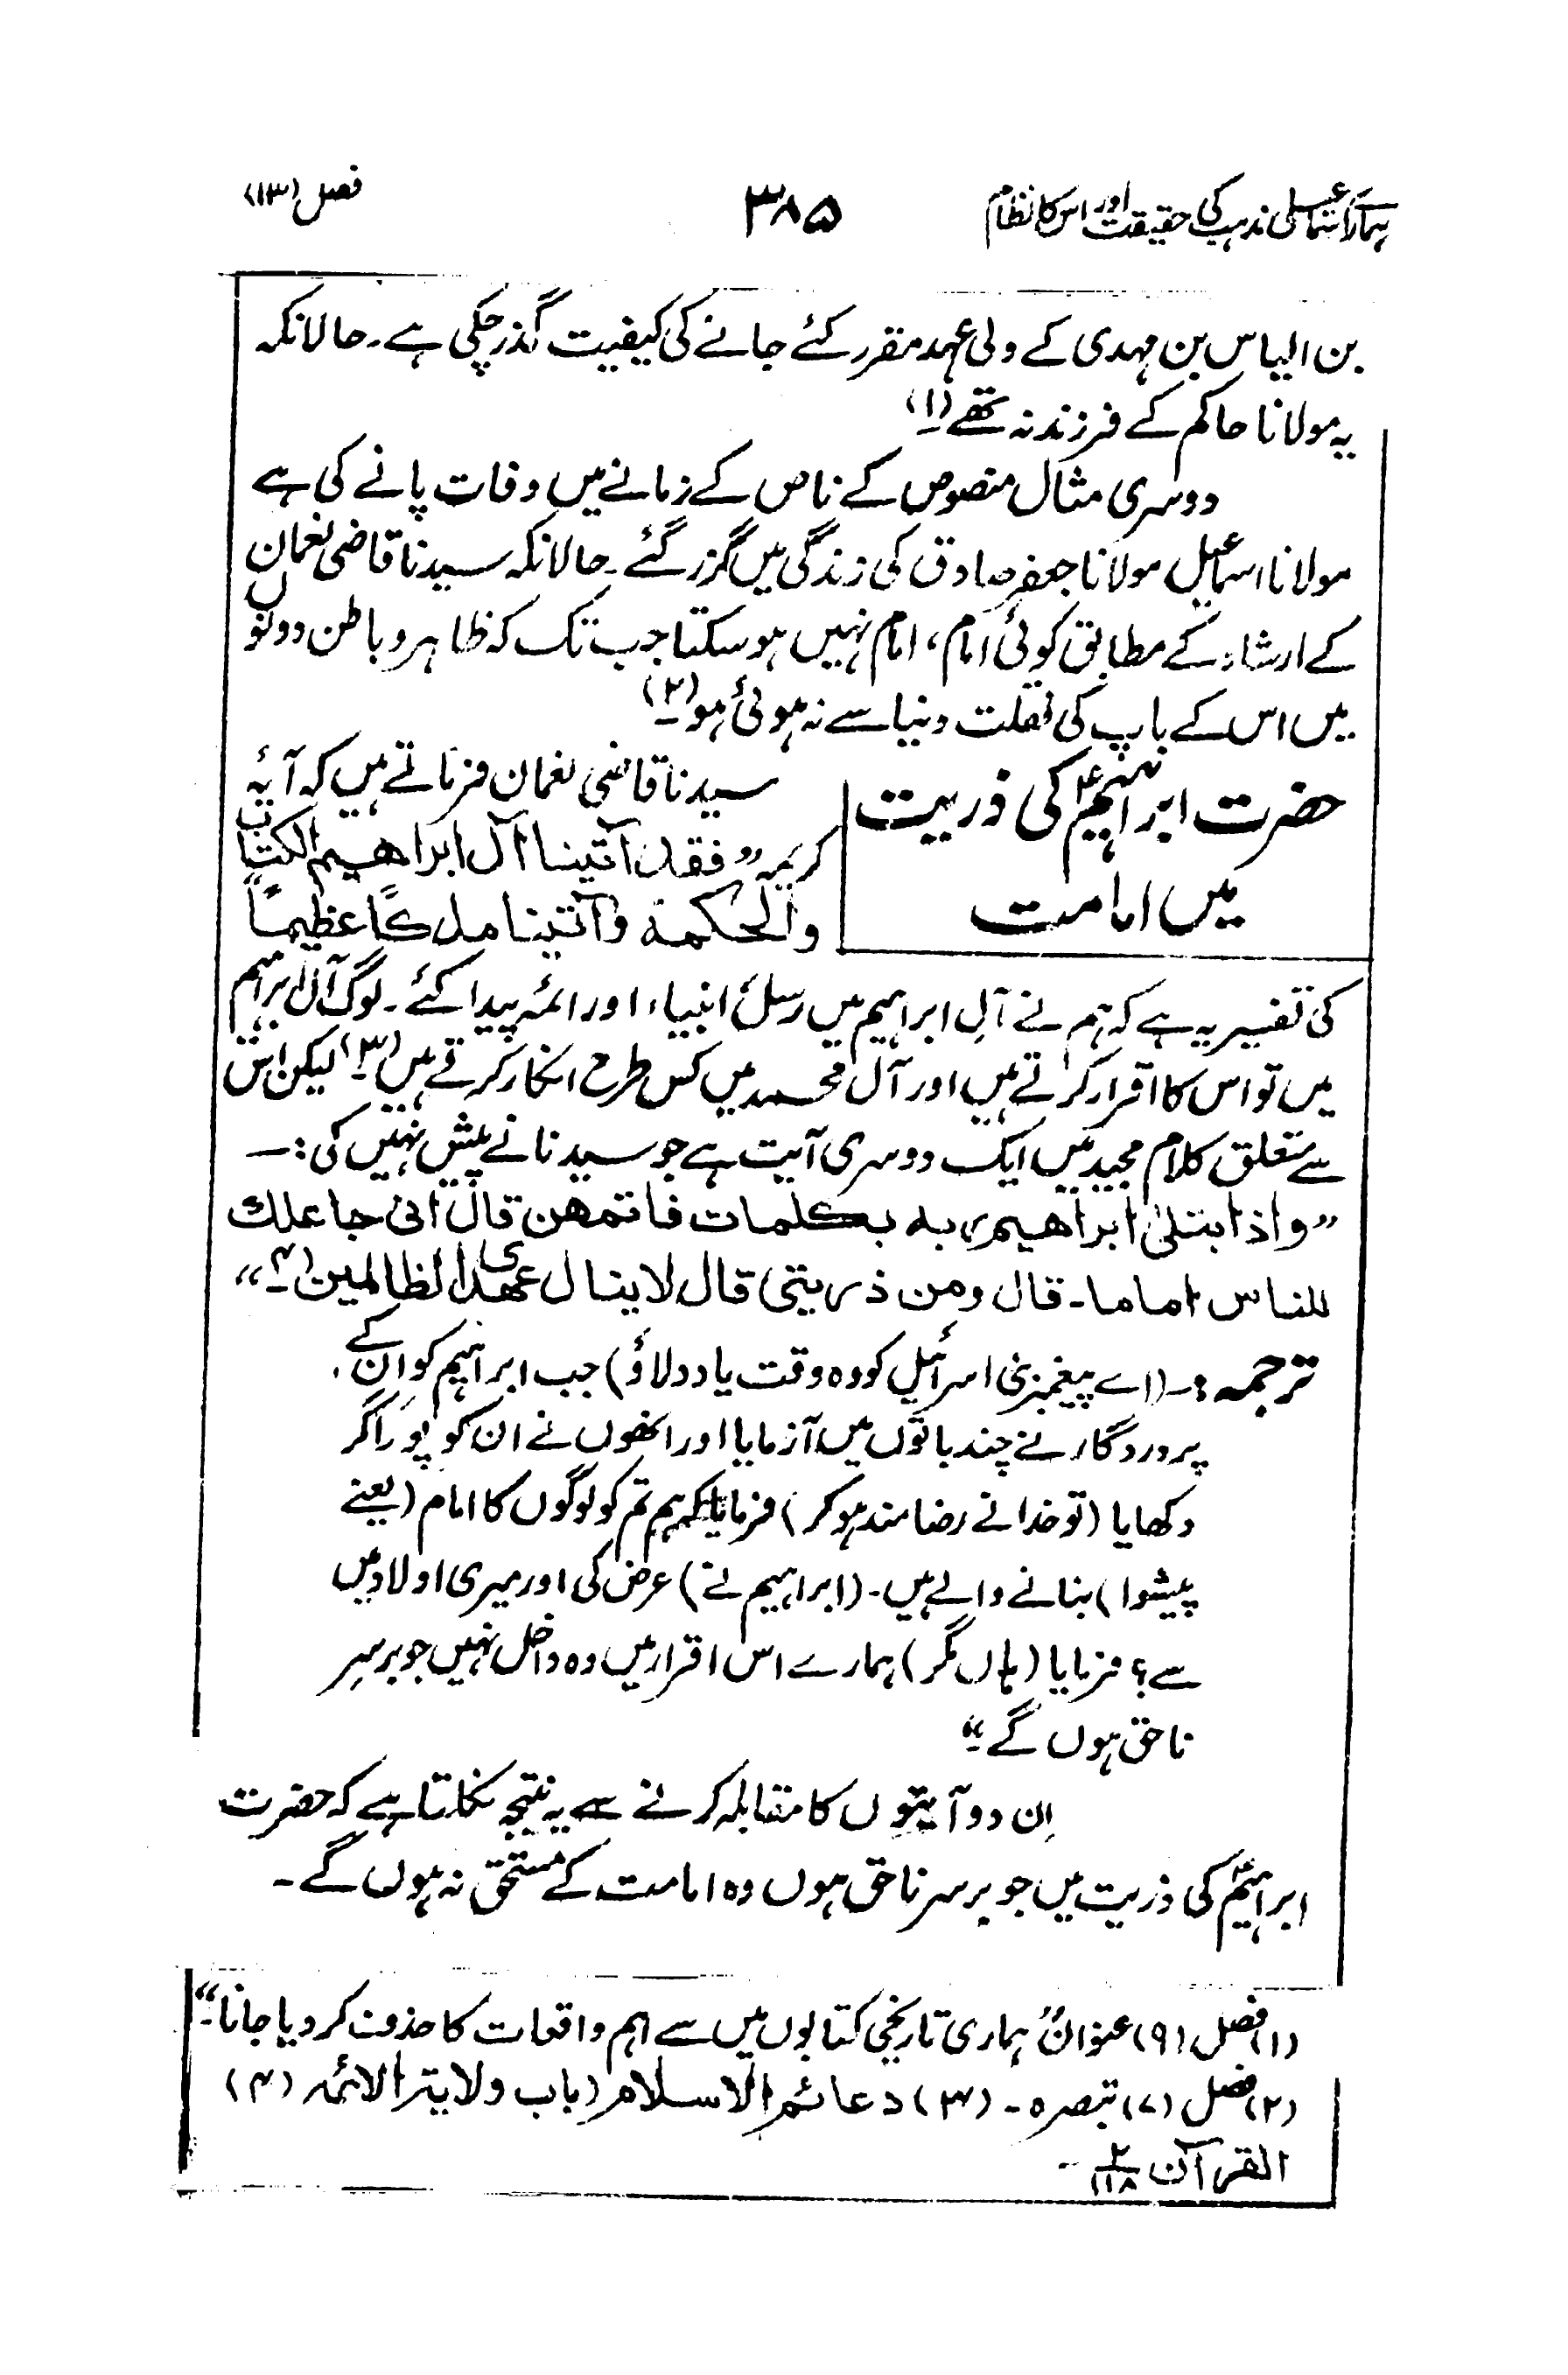 ہمارے اسماعیلی مذہب کی حقیقت اور اس کا نظام ۳۸۵ فصل (۱۳)
بن الیاس بن مہدی کے ولی عہد مقرر کئے جانے کی کیفیت گذر چکی ہے۔ حالانکہ
یہ مولانا حاکم کے فرزند نہ تھے (۱)
دوسری مثال منصوص کے ناص کے زمانے میں وفات پانے کی ہے
مولانا اسماعیل مولانا جعفر صادق کی زندگی میں گزر گئے۔ حالانکہ سیدنا قاضی نعمان
کے ارشاد کے مطابق کوئی امام، امام نہیں ہو سکتا جب تک کہ ظاہر و باطن دونوں
میں اس کے باپ کی نقلت دنیا سے نہ ہوئی ہو (۲)
حضرت ابراہیمؑ کی ذریت
میں امامت
سیدنا قاضی نعمان فرماتے ہیں کہ آیۂ
کریمہ ”فقد آتینا آل ابراھیم الکتاب
والحکمة وآتینا ملکاً عظیماً“
کی تفسیر یہ ہے کہ ہم نے آلِ ابراہیم میں رسل انبیاء اور ائمہ پیدا کئے۔ لوگ آل ابراہیم
میں تو اس کا اقرار کرتے ہیں اور آل محمد میں کس طرح انکار کرتے ہیں (۳) لیکن اس
سے متعلق کلام مجید میں ایک دوسری آیت ہے جو سیدنا نے پیش نہیں کی:۔
”واذا بتلیٰ ابراھیم ربہ بکلمات فاتمھن قال انی جاعلك
للناس اماما۔ قال ومن ذریتی قال لا ینال عھدی الظالمین (۴)“
ترجمہ:۔ (اے پیغمبر بنی اسرائیل کو وہ وقت یاد دلاؤ) جب ابراہیم کو ان کے
پروردگار نے چند باتوں میں آزمایا اور انھوں نے ان کو پورا کر
دکھایا (تو خدا نے رضامند ہو کر) فرمایا کہ ہم تم کو لوگوں کا امام (یعنے
پیشوا) بنانے والے ہیں۔ (ابراہیم نے) عرض کی اور میری اولاد میں
سے؟ فرمایا (ہاں مگر) ہمارے اس اقرار میں وہ داخل نہیں جو برسرِ
ناحق ہوں گے۔“
اِن دو آیتوں کا مقابلہ کرنے سے یہ نتیجہ نکلتا ہے کہ حضرت
ابراہیمؑ کی ذریت میں جو برسر ناحق ہوں وہ امامت کے مستحق نہ ہوں گے۔
(۱) فصل (۹) عنوان ”ہماری تاریخی کتابوں میں سے اہم واقعات کا حذف کر دیا جانا۔“
(۲) فصل (۷) تبصرہ۔ (۳) دعائم الاسلام (باب ولایۃ الائمہ (۴)
القرآن ۲/۱۱۸۔